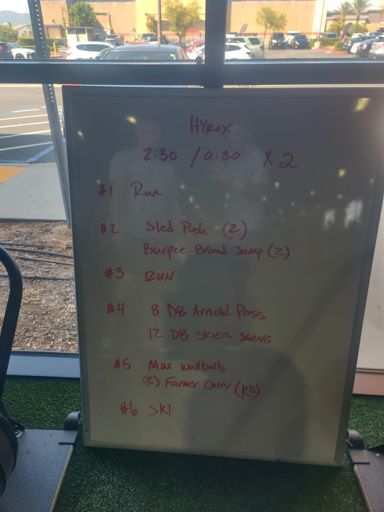 HYROX
2:30 / 0:30 X 2
#1 Run
#2 Sled Push (2)
Burpee Broad Jump (2)
#3 RUN
#4 8 DB Arnold Press
12 DB SKIER SWING
#5 Max Wallballs
(2) Farmer Carry (KB)
#6 SKI